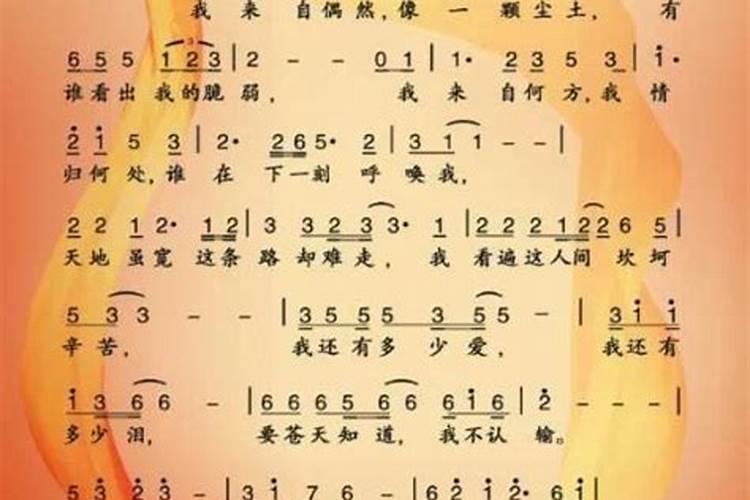 我 来 自偶然,像 一 颗尘土, 有
6 5 5 1 2 3 | 2 - - 0 1 | 1· 2 3 5 3 | 1·
谁看出 我的脆 弱, 我 来 自何 方,我 情
2 1 5 3 | 2· 2 6 5· 2 | 3 1 1 - - |
归何 处,谁 在 下一刻 呼 唤我,
2 2 1 2· 1 2 | 3 3 2 3 3· 1 | 2 2 2 1 2 2 6 5 |
天地 虽宽 这条 路 却难 走, 我 看遍这人间 坎 坷
5 3 3 - - | 3 5 5 5 3 5 5 - | 3 1 1
辛苦, 我还有多 少 爱, 我还有
1 3 6 6 - | 6 6 6 5 6 6 6 1 6 | 2 - - |
多少 泪, 要苍天知 道, 我不认 输。
5 3 2 3 - - | 3 1 7 6 - | 6 2 1 2· 6 1 |